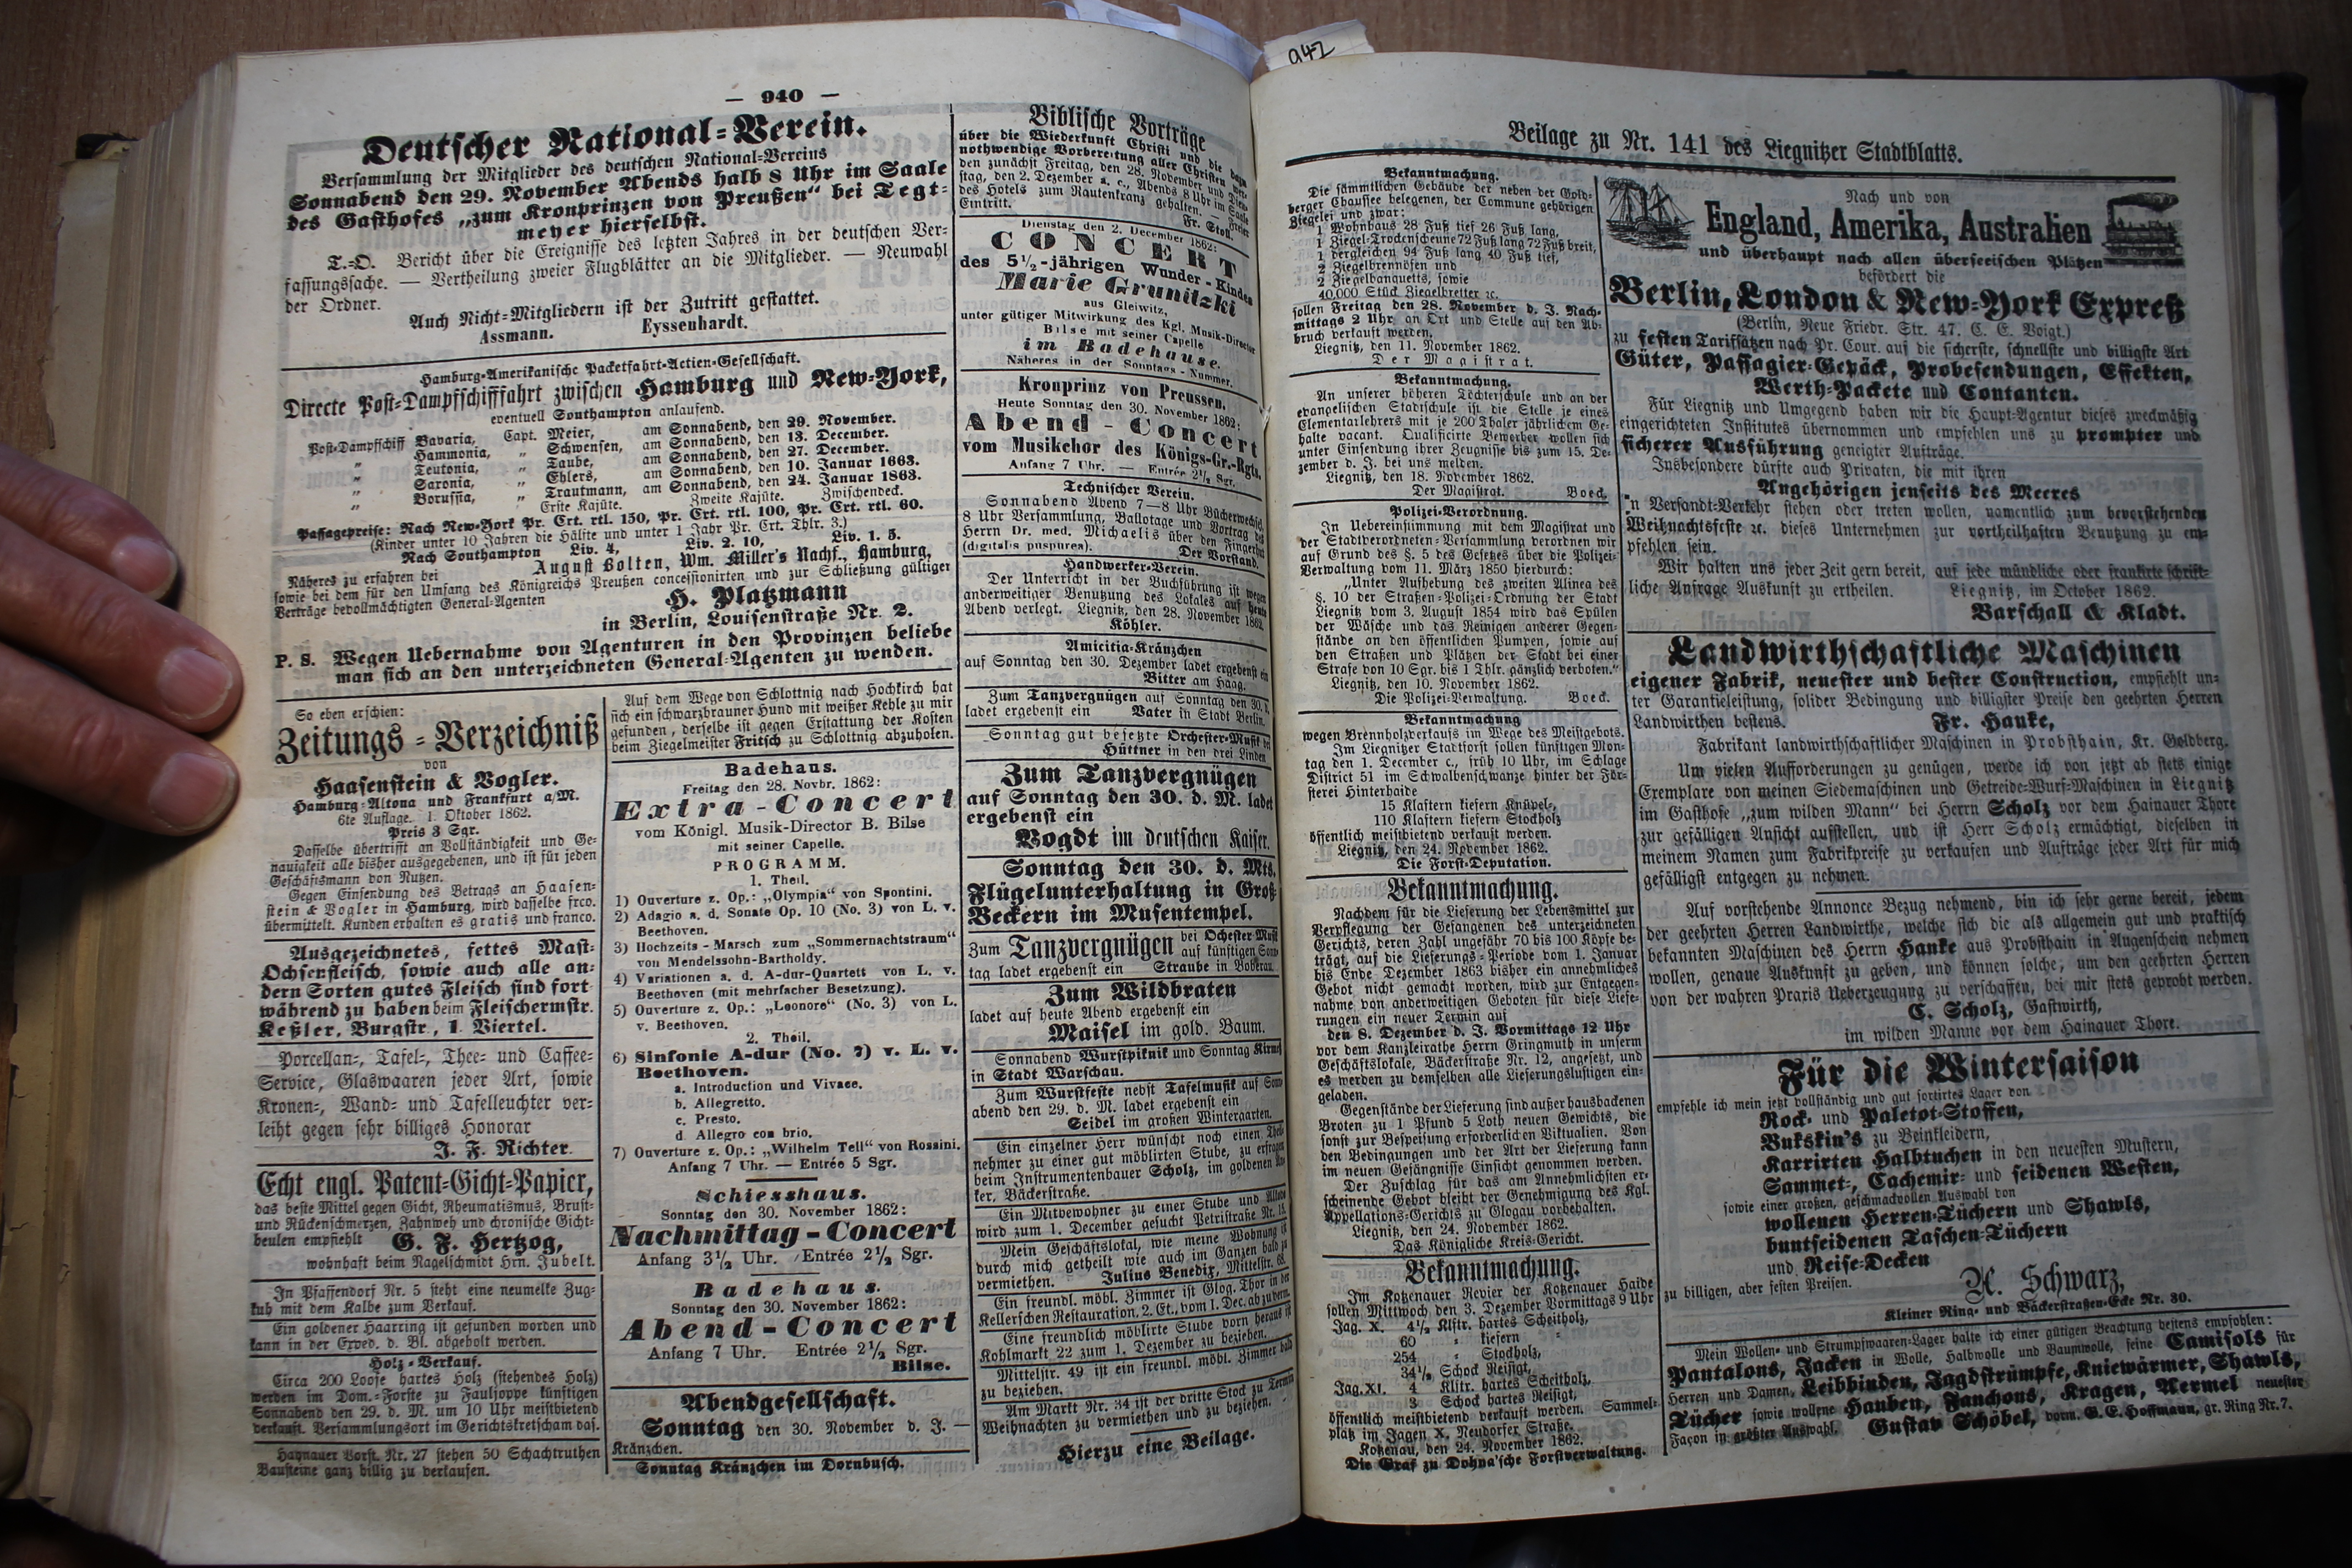 942
— 940 —
Deutscher National=Verein.
Versammlung der Mitglieder des deutschen National=Vereins
Sonnabend den 29. November Abends halb 8 Uhr im Saale
des Gasthofes „zum Kronprinzen von Preußen“ bei Tegt=
meyer hierselbst.
T.=O. Bericht über die Ereignisse des letzten Jahres in der deutschen Ver=
fassungssache. — Vertheilung zweier Flugblätter an die Mitglieder. — Neuwahl
der Ordner.
Auch Nicht=Mitgliedern ist der Zutritt gestattet.
Assmann. Eyssenhardt.
Hamburg=Amerikanische Packetfahrt=Actien=Gesellschaft.
Directe Post=Dampfschifffahrt zwischen Hamburg und New=York,
eventuell Southampton anlaufend.
Post=Dampfschiff Bavaria, Capt. Meier, am Sonnabend, den 29. November.
„ Hammonia, „ Schwensen, am Sonnabend, den 13. December.
„ Teutonia, „ Taube, am Sonnabend, den 27. December.
„ Saxonia, „ Ehlers, am Sonnabend, den 10. Januar 1663.
„ Borussia, „ Trautmann, am Sonnabend, den 24. Januar 1863.
Erste Kajüte. Zweite Kajüte. Zwischendeck.
Passagepreise: Nach New=York Pr. Crt. rtl. 150, Pr. Crt. rtl. 100, Pr. Crt. rtl. 60.
(Kinder unter 10 Jahren die Hälfte und unter 1 Jahr Pr. Crt. Thlr. 3.)
Nach Southampton Liv. 4, Liv. 2. 10, Liv. 1. 5.
Näheres zu erfahren bei August Bolten, Wm. Miller's Nachf., Hamburg,
sowie bei dem für den Umfang des Königreichs Preußen concessionirten und zur Schließung gültiger
Verträge bevollmächtigten General=Agenten
H. Platzmann
in Berlin, Louisenstraße Nr. 2.
P. S. Wegen Uebernahme von Agenturen in den Provinzen beliebe
man sich an den unterzeichneten General=Agenten zu wenden.
So eben erschien:
Zeitungs=Verzeichniß
von
Haasenstein & Vogler.
Hamburg=Altona und Frankfurt a/M.
6te Auflage. 1. Oktober 1862.
Preis 3 Sgr.
Dasselbe übertrifft an Vollständigkeit und Ge=
nauigkeit alle bisher ausgegebenen, und ist für jeden
Geschäftsmann von Nutzen.
Gegen Einsendung des Betrags an Haasen=
stein & Vogler in Hamburg, wird dasselbe frco.
übermittelt. Kunden erhalten es gratis und franco.
Ausgezeichnetes, fettes Mast=
Ochsenfleisch, sowie auch alle an=
dern Sorten gutes Fleisch sind fort
während zu haben beim Fleischermstr.
Keßler, Burgstr., 1. Viertel.
Porcellan=, Tafel=, Thee= und Caffee=
Service, Glaswaaren jeder Art, sowie
Kronen=, Wand= und Tafelleuchter ver=
leiht gegen sehr billiges Honorar
J. F. Richter.
Echt engl. Patent=Gicht=Papier,
das beste Mittel gegen Gicht, Rheumatismus, Brust=
und Rückenschmerzen, Zahnweh und chronische Gicht=
beulen empfiehlt G. F. Hertzog,
wohnhaft beim Nagelschmidt Hrn. Jubelt.
In Pfaffendorf Nr. 5 steht eine neumelke Zug=
kuh mit dem Kalbe zum Verkauf.
Ein goldener Haarring ist gefunden worden und
kann in der Exped. d. Bl. abgeholt werden.
Holz=Verkauf.
Circa 200 Loose hartes Holz (stehendes Holz)
werden im Dom.=Forste zu Fauljoppe künftigen
Sonnabend den 29. d. M. um 10 Uhr meistbietend
verkauft. Versammlungsort im Gerichtskretscham das.
Haynauer Vorst. Nr. 27 stehen 50 Schachtruthen
Bausteine ganz billig zu verkaufen.
Auf dem Wege von Schlottnig nach Hochkirch hat
sich ein schwarzbrauner Hund mit weißer Kehle zu mir
gefunden, derselbe ist gegen Erstattung der Kosten
beim Ziegelmeister Fritsch zu Schlottnig abzuholen.
Badehaus.
Freitag den 28. Novbr. 1862:
Extra-Concert
vom Königl. Musik-Director B. Bilse
mit seiner Capelle.
PROGRAMM.
1. Theil.
1) Ouverture z. Op.: „Olympia“ von Spontini.
2) Adagio a. d. Sonate Op. 10 (No. 3) von L. v.
Beethoven.
3) Hochzeits-Marsch zum „Sommernachtstraum“
von Mendelssohn-Bartholdy.
4) Variationen a. d. A-dur-Quartett von L. v.
Beethoven (mit mehrfacher Besetzung).
5) Ouverture z. Op.: „Leonore“ (No. 3) von L.
v. Beethoven.
2. Theil.
6) Sinfonie A-dur (No. 7) v. L. v.
Beethoven.
a. Introduction und Vivace.
b. Allegretto.
c. Presto.
d. Allegro con brio.
7) Ouverture z. Op.: „Wilhelm Tell“ von Rossini.
Anfang 7 Uhr. — Entrée 5 Sgr.
Schiesshaus.
Sonntag den 30. November 1862:
Nachmittag-Concert
Anfang 3½ Uhr. Entrée 2½ Sgr.
Badehaus.
Sonntag den 30. November 1862:
Abend-Concert
Anfang 7 Uhr. Entrée 2½ Sgr.
Bilse.
Abendgesellschaft.
Sonntag den 30. November d. J. —
Kränzchen.
Sonntag Kränzchen im Dornbusch.
Biblische Vorträge
über die Wiederkunft Christi und die dazu
nothwendige Vorbereitung aller Christen werden
den zunächst Freitag, den 28. November und Diens=
tag, den 2. Dezember a. c., Abends 8 Uhr im Saale
des Hotels zum Rautenkranz gehalten. — Freier
Eintritt. Fr. Stoll.
Dienstag den 2. December 1862:
CONCERT
des 5½-jährigen Wunder-Kindes
Marie Grunitzki
aus Gleiwitz,
unter gütiger Mitwirkung des Kgl. Musik-Director
Bilse mit seiner Capelle
im Badehause.
Näheres in der Sonntags-Nummer.
Kronprinz von Preussen.
Heute Sonntag den 30. November 1862:
Abend-Concert
vom Musikchor des Königs-Gr.-Rgts.
Anfang 7 Uhr. — Entrée 2½ Sgr.
Technischer Verein.
Sonnabend Abend 7—8 Uhr Bücherwechsel,
8 Uhr Versammlung, Ballotage und Vortrag des
Herrn Dr. med. Michaelis über den Fingerhut
(digitalis puspurea). Der Vorstand.
Handwerker=Verein.
Der Unterricht in der Buchführung ist wegen
anderweitiger Benutzung des Lokales auf heute
Abend verlegt. Liegnitz, den 28. November 1862.
Köhler.
Amicitia=Kränzchen
auf Sonntag den 30. Dezember ladet ergebenst ein
Bitter am Haag.
Zum Tanzvergnügen auf Sonntag den 30. d.
ladet ergebenst ein Vater in Stadt Berlin.
Sonntag gut besetzte Orchester=Musik bei
Hüttner in den drei Linden
Zum Tanzvergnügen
auf Sonntag den 30. d. M. ladet
ergebenst ein
Vogdt im deutschen Kaiser.
Sonntag den 30. d. Mts.
Flügelunterhaltung in Groß=
Beckern im Musentempel.
Zum Tanzvergnügen bei Ochester=Musik
auf künftigen Sonn
tag ladet ergebenst ein Straube in Boberau.
Zum Wildbraten
ladet auf heute Abend ergebenst ein
Maisel im gold. Baum.
Sonnabend Wurstpiknik und Sonntag Kirmeß
in Stadt Warschau.
Zum Wurstfeste nebst Tafelmusik auf Sonn
abend den 29. d. M. ladet ergebenst ein
Seidel im großen Wintergarten.
Ein einzelner Herr wünscht noch einen Theil
nehmer zu einer gut möblirten Stube, zu erfragen
beim Instrumentenbauer Scholz, im goldenen
ker, Bäckerstraße.
Ein Mitbewohner zu einer Stube und Alkove
wird zum 1. December gesucht Petristraße Nr. 15.
Mein Geschäftslokal, wie meine Wohnung ist
durch mich getheilt wie auch im Ganzen bald zu
vermiethen. Julius Benedix, Mittelstr. 68.
Ein freundl. möbl. Zimmer ist Glog. Thor in der
Kellerschen Restauration, 2. Et., vom 1. Dec. ab zu verm.
Eine freundlich möblirte Stube vorn heraus ist
Kohlmarkt 22 zum 1. Dezember zu beziehen.
Mittelstr. 49 ist ein freundl. möbl. Zimmer bald
zu beziehen.
Am Markt Nr. 34 ist der dritte Stock zu Termin
Weihnachten zu vermiethen und zu beziehen.
Hierzu eine Beilage.
Beilage zu Nr. 141 des Liegnitzer Stadtblatts.
Bekanntmachung.
Die sämmtlichen Gebäude der neben der Gold=
berger Chaussee belegenen, der Commune gehörigen
Ziegelei und zwar:
1 Wohnhaus 28 Fuß tief 26 Fuß lang,
1 Ziegel=Trockenscheune 72 Fuß lang 72 Fuß breit,
1 dergleichen 94 Fuß lang 40 Fuß tief,
2 Ziegelbrennöfen und
2 Ziegelbanquetts, sowie
40,000 Stück Ziegelbretter ꝛc.
sollen Freitag den 28. November d. J. Nach=
mittags 2 Uhr an Ort und Stelle auf den Ab=
bruch verkauft werden.
Liegnitz, den 11. November 1862.
Der Magistrat.
Bekanntmachung.
An unserer höheren Töchterschule und an der
evangelischen Stadtschule ist die Stelle je eines
Elementarlehrers mit je 200 Thaler jährlichem Ge=
halte vacant. Qualificirte Bewerber wollen sich
unter Einsendung ihrer Zeugnisse bis zum 15. De=
zember d. J. bei uns melden.
Liegnitz, den 18. November 1862.
Der Magistrat. Boeck.
Polizei=Verordnung.
In Uebereinstimmung mit dem Magistrat und
der Stadtverordneten=Versammlung verordnen wir
auf Grund des §. 5 des Gesetzes über die Polizei=
Verwaltung vom 11. März 1850 hierdurch:
„Unter Aufhebung des zweiten Alinea des
§. 10 der Straßen=Polizei=Ordnung der Stadt
Liegnitz vom 3. August 1854 wird das Spülen
der Wäsche und das Reinigen anderer Gegen=
stände an den öffentlichen Pumpen, sowie auf
den Straßen und Plätzen der Stadt bei einer
Strafe von 10 Sgr. bis 1 Thlr. gänzlich verboten.“
Liegnitz, den 10. November 1862.
Die Polizei=Verwaltung. Boeck.
Bekanntmachung
wegen Brennholzverkaufs im Wege des Meistgebots.
Im Liegnitzer Stadtforst sollen künftigen Mon=
tag den 1. December c., früh 10 Uhr, im Schlage
District 51 im Schwalbenschwanze hinter der För=
sterei Hinterhaide
15 Klaftern kiefern Knüpel=,
110 Klaftern kiefern Stockholz
öffentlich meistbietend verkauft werden.
Liegnitz, den 24. November 1862.
Die Forst=Deputation.
Bekanntmachung.
Nachdem für die Lieferung der Lebensmittel zur
Verpflegung der Gefangenen des unterzeichneten
Gerichts, deren Zahl ungefähr 70 bis 100 Köpfe be=
trägt, auf die Lieferungs=Periode vom 1. Januar
bis Ende Dezember 1863 bisher ein annehmliches
Gebot nicht gemacht worden, wird zur Entgegen=
nahme von anderweitigen Geboten für diese Liefe=
rungen ein neuer Termin auf
den 8. Dezember d. J. Vormittags 12 Uhr
vor dem Kanzleirathe Herrn Gringmuth in unserm
Geschäftslokale, Bäckerstraße Nr. 12, angesetzt, und
es werden zu demselben alle Lieferungslustigen ein=
geladen.
Gegenstände der Lieferung sind außer hausbackenen
Broten zu 1 Pfund 5 Loth neuen Gewichts, die
sonst zur Bespeisung erforderlichen Viktualien. Von
den Bedingungen und der Art der Lieferung kann
im neuen Gefängnisse Einsicht genommen werden.
Der Zuschlag für das am Annehmlichsten er=
scheinende Gebot bleibt der Genehmigung des Kgl.
Appellations=Gerichts zu Glogau vorbehalten.
Liegnitz, den 24. November 1862.
Das Königliche Kreis=Gericht.
Bekanntmachung.
Im Kotzenauer Revier der Kotzenauer Haide
sollen Mittwoch den 3. Dezember Vormittags 9 Uhr
Jag. X. 4½ Klftr. hartes Scheitholz,
60 „ kiefern „
254 „ Stockholz,
34½ Schock Reisigt,
Jag. XI. 4 Klftr. hartes Scheitholz,
3 Schock hartes Reisigt,
öffentlich meistbietend verkauft werden. Sammel=
platz im Jagen X. Neudorfer Straße.
Kotzenau, den 24. November 1862.
Die Graf zu Dohna'sche Forstverwaltung.
Nach und von
England, Amerika, Australien
und überhaupt nach allen überseeischen Plätzen
befördert die
Berlin, London & New=York Expreß
(Berlin, Neue Friedr. Str. 47. C. E. Voigt.)
zu festen Tarifsätzen nach Pr. Cour. auf die sicherste, schnellste und billigste Art
Güter, Passagier=Gepäck, Probesendungen, Effekten,
Werth=Packete und Contanten.
Für Liegnitz und Umgegend haben wir die Haupt=Agentur dieses zweckmäßig
eingerichteten Institutes übernommen und empfehlen uns zu prompter und
sicherer Ausführung geneigter Aufträge.
Insbesondere dürfte auch Privaten, die mit ihren
Angehörigen jenseits des Meeres
in Versandt=Verkehr stehen oder treten wollen, namentlich zum bevorstehenden
Weihnachtsfeste ꝛc. dieses Unternehmen zur vortheilhaften Benutzung zu em=
pfehlen sein.
Wir halten uns jeder Zeit gern bereit, auf jede mündliche oder frankirte schrift=
liche Anfrage Auskunft zu ertheilen. Liegnitz, im October 1862.
Barschall & Kladt.
Landwirthschaftliche Maschinen
eigener Fabrik, neuester und bester Construction, empfiehlt un=
ter Garantieleistung, solider Bedingung und billigster Preise den geehrten Herren
Landwirthen bestens. Fr. Hanke,
Fabrikant landwirthschaftlicher Maschinen in Probsthain, Kr. Goldberg.
Um vielen Aufforderungen zu genügen, werde ich von jetzt ab stets einige
Exemplare von meinen Siedemaschinen und Getreide=Wurf=Maschinen in Liegnitz
im Gasthofe „zum wilden Mann“ bei Herrn Scholz vor dem Hainauer Thore
zur gefälligen Ansicht aufstellen, und ist Herr Scholz ermächtigt, dieselben in
meinem Namen zum Fabrikpreise zu verkaufen und Aufträge jeder Art für mich
gefälligst entgegen zu nehmen.
Auf vorstehende Annonce Bezug nehmend, bin ich sehr gerne bereit, jedem
der geehrten Herren Landwirthe, welche sich die als allgemein gut und praktisch
bekannten Maschinen des Herrn Hanke aus Probsthain in Augenschein nehmen
wollen, genaue Auskunft zu geben, und können solche, um den geehrten Herren
von der wahren Praxis Ueberzeugung zu verschaffen, bei mir stets geprobt werden.
C. Scholz, Gastwirth,
im wilden Manne vor dem Hainauer Thore.
Für die Wintersaison
empfehle ich mein jetzt vollständig und gut sortirtes Lager von
Rock= und Paletot=Stoffen,
Bukskin's zu Beinkleidern,
Karrirten Halbtuchen in den neuesten Mustern,
Sammet=, Cachemir= und seidenen Westen,
sowie einer großen, geschmackvollen Auswahl von
wollenen Herren=Tüchern und Shawls,
buntseidenen Taschen=Tüchern
und Reise=Decken
zu billigen, aber festen Preisen. N. Schwarz,
Kleiner Ring= und Bäckerstraßen=Ecke Nr. 30.
Mein Wollen= und Strumpfwaaren=Lager halte ich einer gütigen Beachtung bestens empfohlen:
Pantalons, Jacken in Wolle, Halbwolle und Baumwolle, seine Camisols für
Herren und Damen, Leibbinden, Jagdstrümpfe, Kniewärmer, Shawls,
Tücher sowie wollene Hauben, Fanchons, Kragen, Aermel neuester
Façon in größter Auswahl. Gustav Schöbel, vorm. G. E. Hoffmann, gr. Ring Nr. 7.